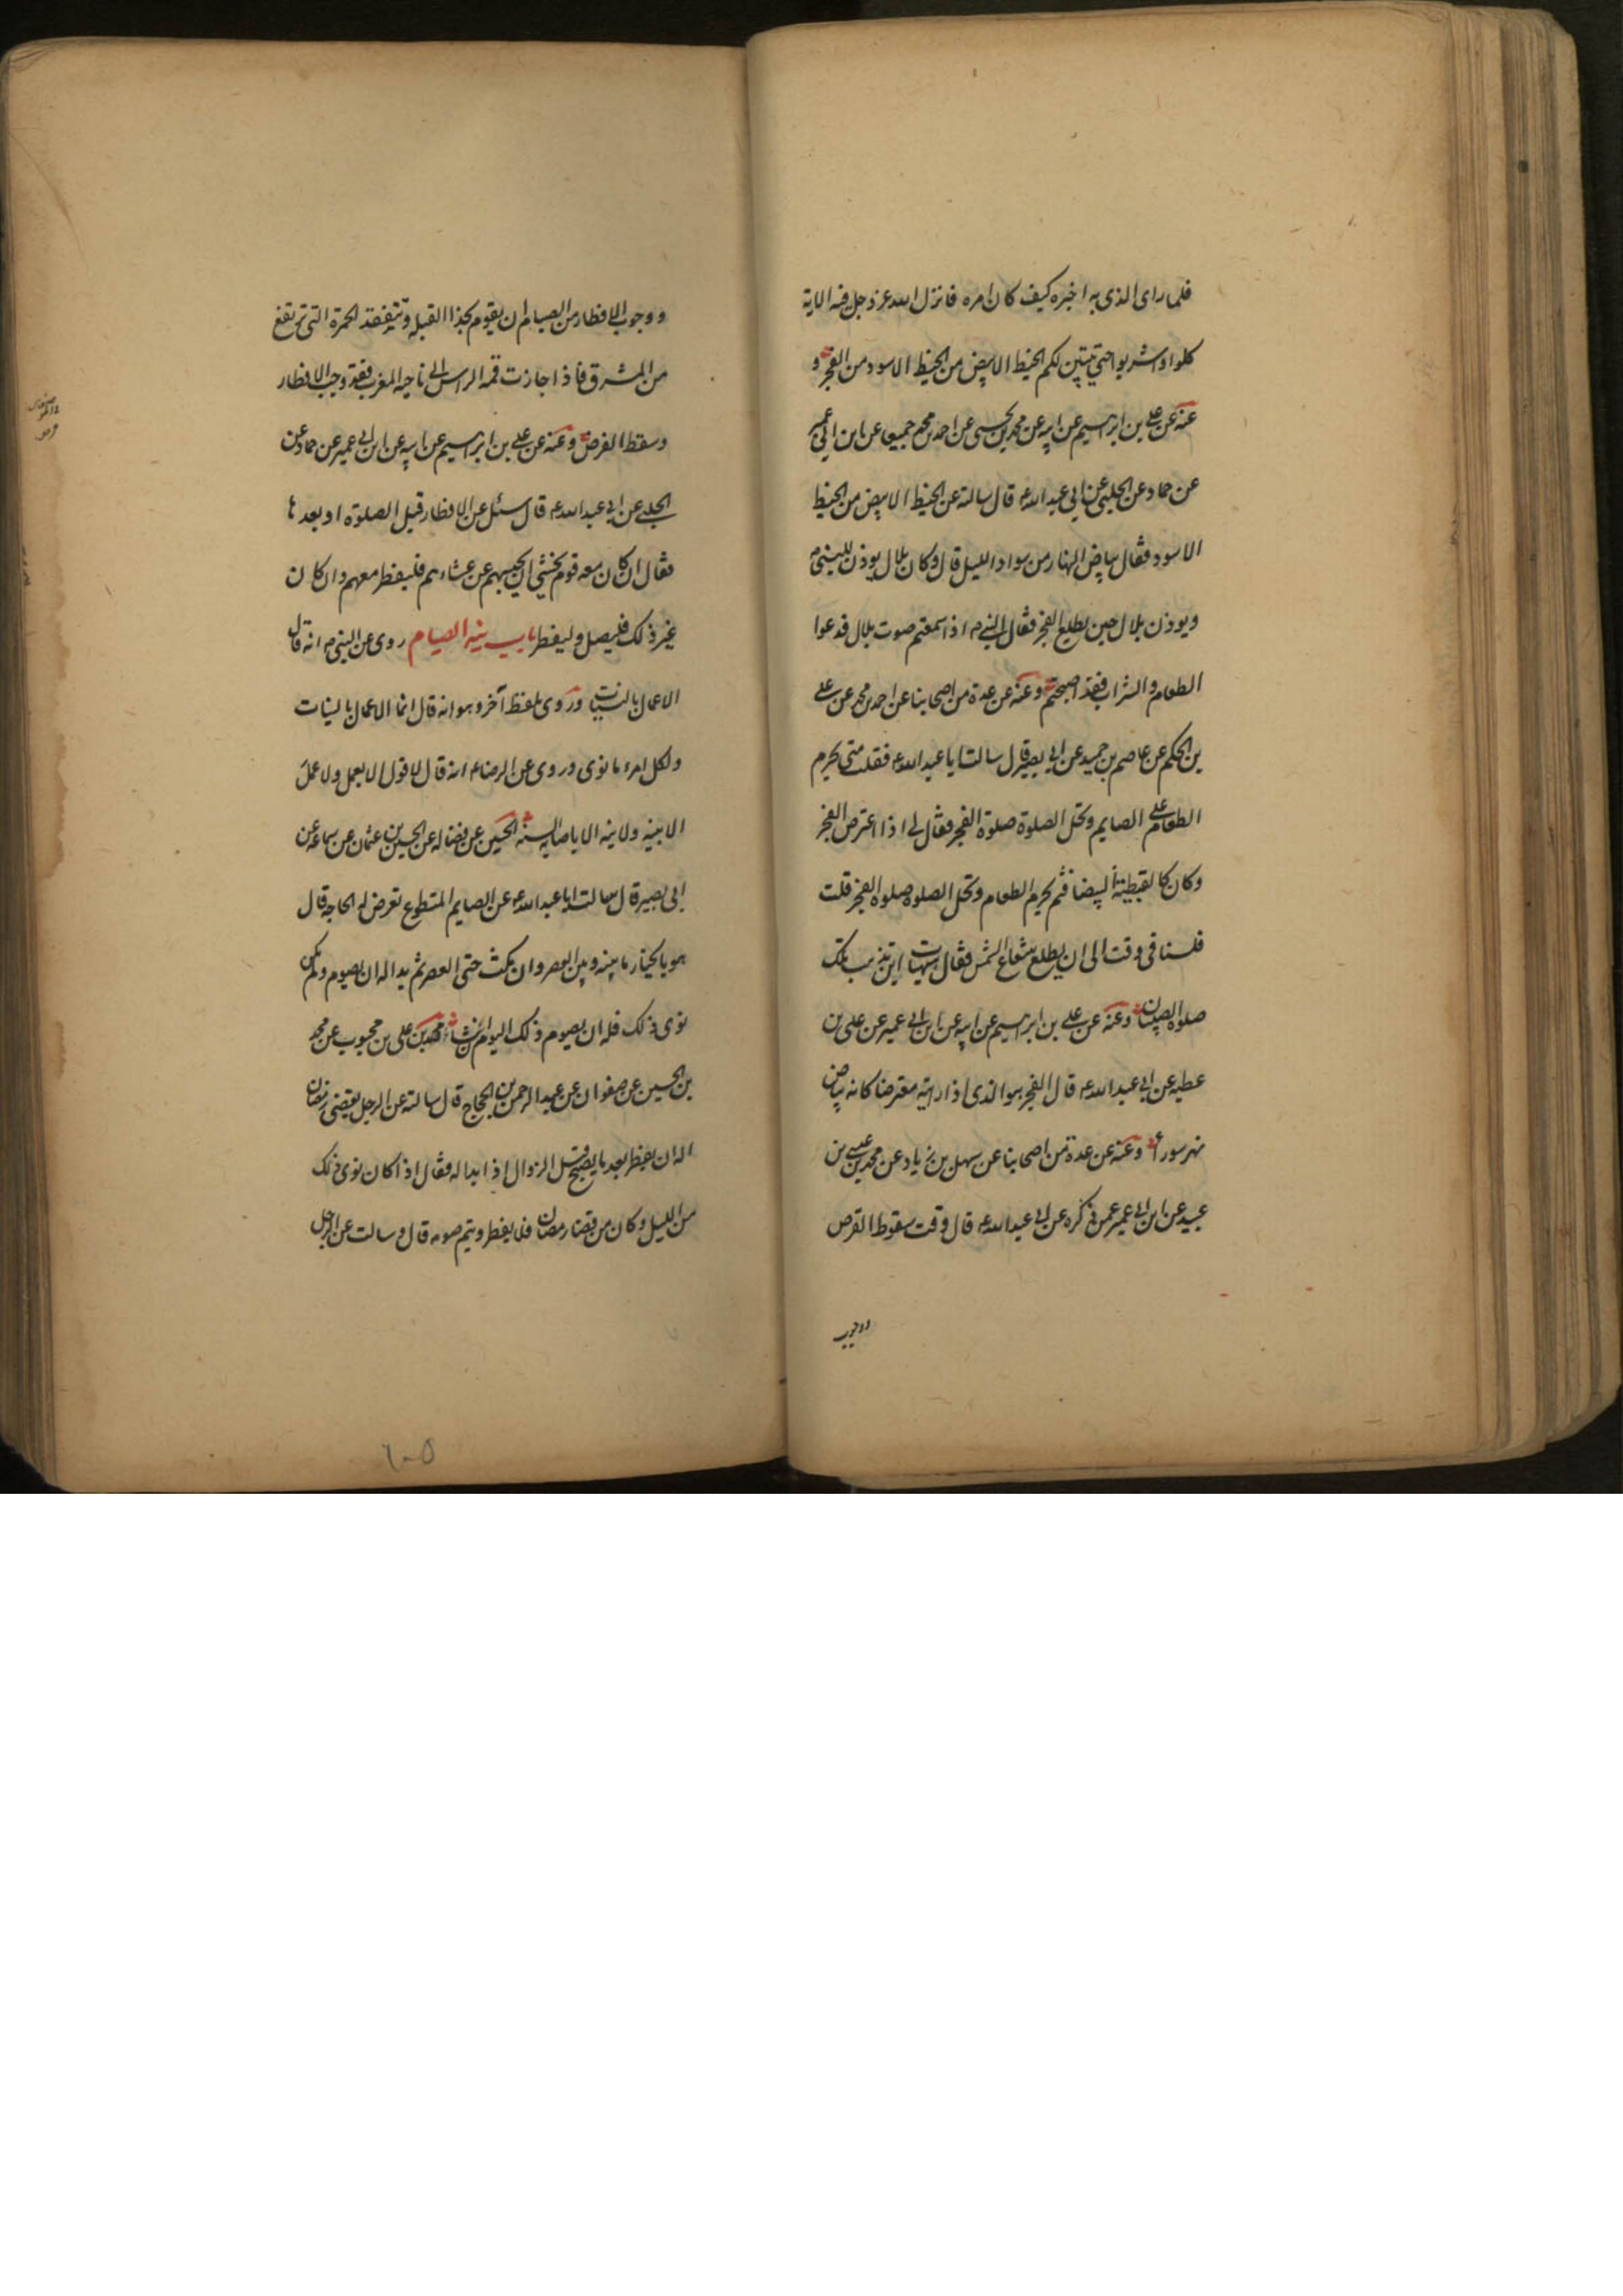 فلما راى الذى به اخبره كيف كان امره فانزل الله عز وجل فيه الاية
كلوا واشربوا حتى يتبين لكم الخيط الابيض من الخيط الاسود من الفجر و
عنه عن على بن ابرهيم عن ابيه عن محمد بن يحيى عن احمد بن محمد جميعا عن ابن ابى عمير
عن حماد عن الحلبى عن ابى عبد الله ع قال سالته عن الخيط الابيض من الخيط
الاسود فقال بياض النهار من سواد الليل قال وكان بلال يوذن للنبى ص
ويوذن بلال حين يطلع الفجر فقال النبى ص اذا سمعتم صوت بلال فدعوا
الطعام والشراب فقد اصبحتم وعنه عن عدة من اصحابنا عن احمد بن محمد عن على
بن الحكم عن عاصم بن حميد عن ابى بصير قال سالت ابا عبد الله ع فقلت متى يحرم
الطعام على الصايم وتحل الصلوة صلوة الفجر فقال لى اذا اعترض الفجر
وكان كالقبطية البيضا فثم يحرم الطعام وتحل الصلوه صلوه الفجر قلت
فلسنا فى وقت الى ان يطلع شعاع الشمس فقال هيهات اين تذهب تلك
صلوه الصبيان وعنه عن على بن ابرهيم عن ابيه عن ابن ابى عمير عن على بن
عطيه عن ابى عبد الله ع قال الفجر هو الذى اذا رايته معترضا كانه بياض
نهر سوراء وعنه عن عدة من اصحابنا عن سهل بن زياد عن محمد بن عيسى بن
عبيد عن ابن ابى عمير عمن ذكره عن ابى عبد الله ع قال وقت سقوط القرص
ووجوب
ووجوب الافطار من الصيام ان يقوم بحذا القبله وتتفقد الحمرة التى ترتفع
من المشرق فاذا جازت قمه الراس الى ناحيه المغرب فقد وجب الافطار
وسقط القرص وعنه عن على بن ابرهيم عن ابيه عن ابن ابى عمير عن حماد عن
الحلبى عن ابى عبد الله ع قال سئل عن الافطار قبل الصلوة او بعدها
فقال ان كان معه قوم يخشى ان يحبسهم عن عشائهم فليفطر معهم وان كان
غير ذلك فليصل وليفطر باب نية الصيام روى عن النبى ص انه قال
الاعمال بالنيات وروى بلفظ آخر وهو انه قال انما الاعمال بالنيات
ولكل امرء ما نوى وروى عن الرضا ع انه قال لا قول الا بعمل ولا عمل
الا بنيه ولا نيه الا باصابه السنه الحسين عن فضاله عن الحسين بن عثمان عن سماعه عن
ابى بصير قال سالت ابا عبد الله ع عن الصايم المتطوع تعرض له الحاجه قال
هو بالخيار ما بينه وبين العصر وان مكث حتى العصر ثم بدا له ان يصوم ولم يكن
نوى ذلك فله ان يصوم ذلك اليوم ان شاء محمد بن على بن محبوب عن محمد
بن الحسين عن صفوان عن عبد الرحمن بن الحجاج قال سالته عن الرجل يقضى رمضان
اله ان يفطر بعد ما يصبح قبل الزوال اذا بدا له فقال اذا كان نوى ذلك
من الليل وكان من قضا رمضان فلا يفطر ويتم صومه قال وسالت عن الرجل